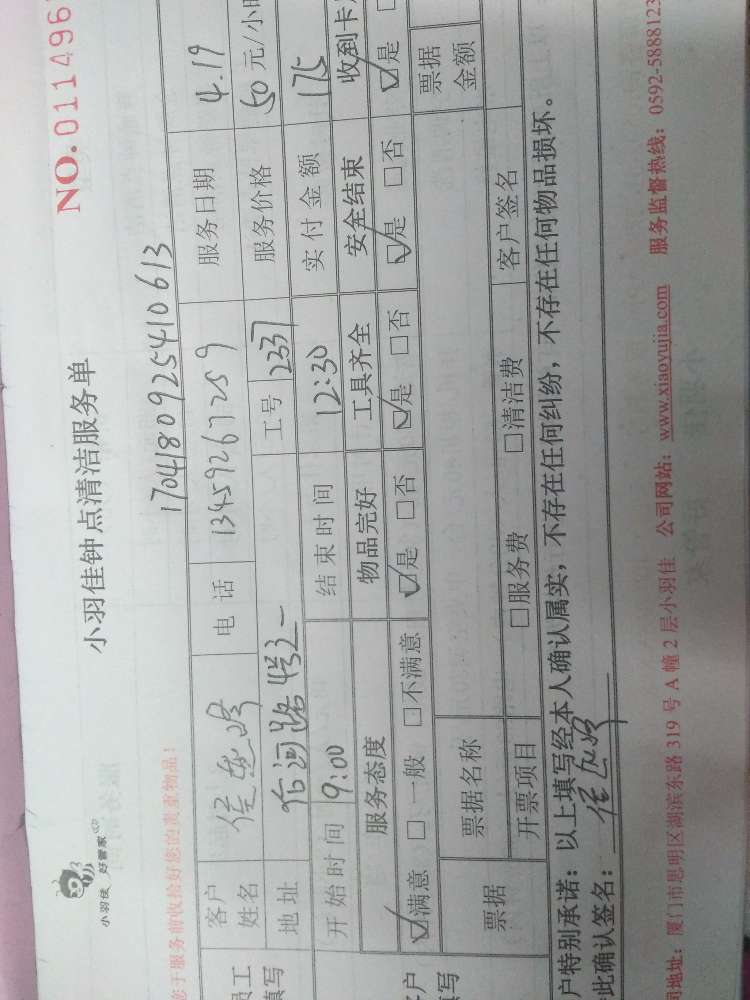 小羽佳 好管家
小羽佳钟点清洁服务单
NO.0114967
您于服务前收拾好您的贵重物品！
1704180925410613
员工 填写
客户姓名 电话 13459267259 服务日期 4.19
地址 4号2一 工号 2337 服务价格 50元/小时
开始时间 9:00 结束时间 12:30 实付金额 175
服务态度 物品完好 工具齐全 安全结束 收到卡
☑满意 □一般 □不满意 ☑是 □否 ☑是 □否 ☑是 □否 ☑是
客户 填写
票据 票据名称 票据金额
开票项目 □服务费 □清洁费 客户签名
户特别承诺：以上填写经本人确认属实，不存在任何纠纷，不存在任何物品损坏。
此确认签名：
司地址：厦门市思明区湖滨东路319号A幢2层小羽佳 公司网站：www.xiaoyujia.com 服务监督热线：0592-5888123